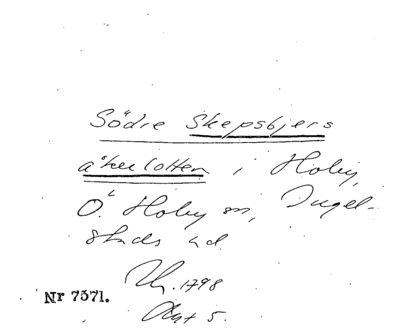 Södre Skepsbjers
åkerlotten i Hoby,
Ö. Hoby sn, Ingel-
stads hd.
Uh. 1798
Nr 7571.
Akt 5.